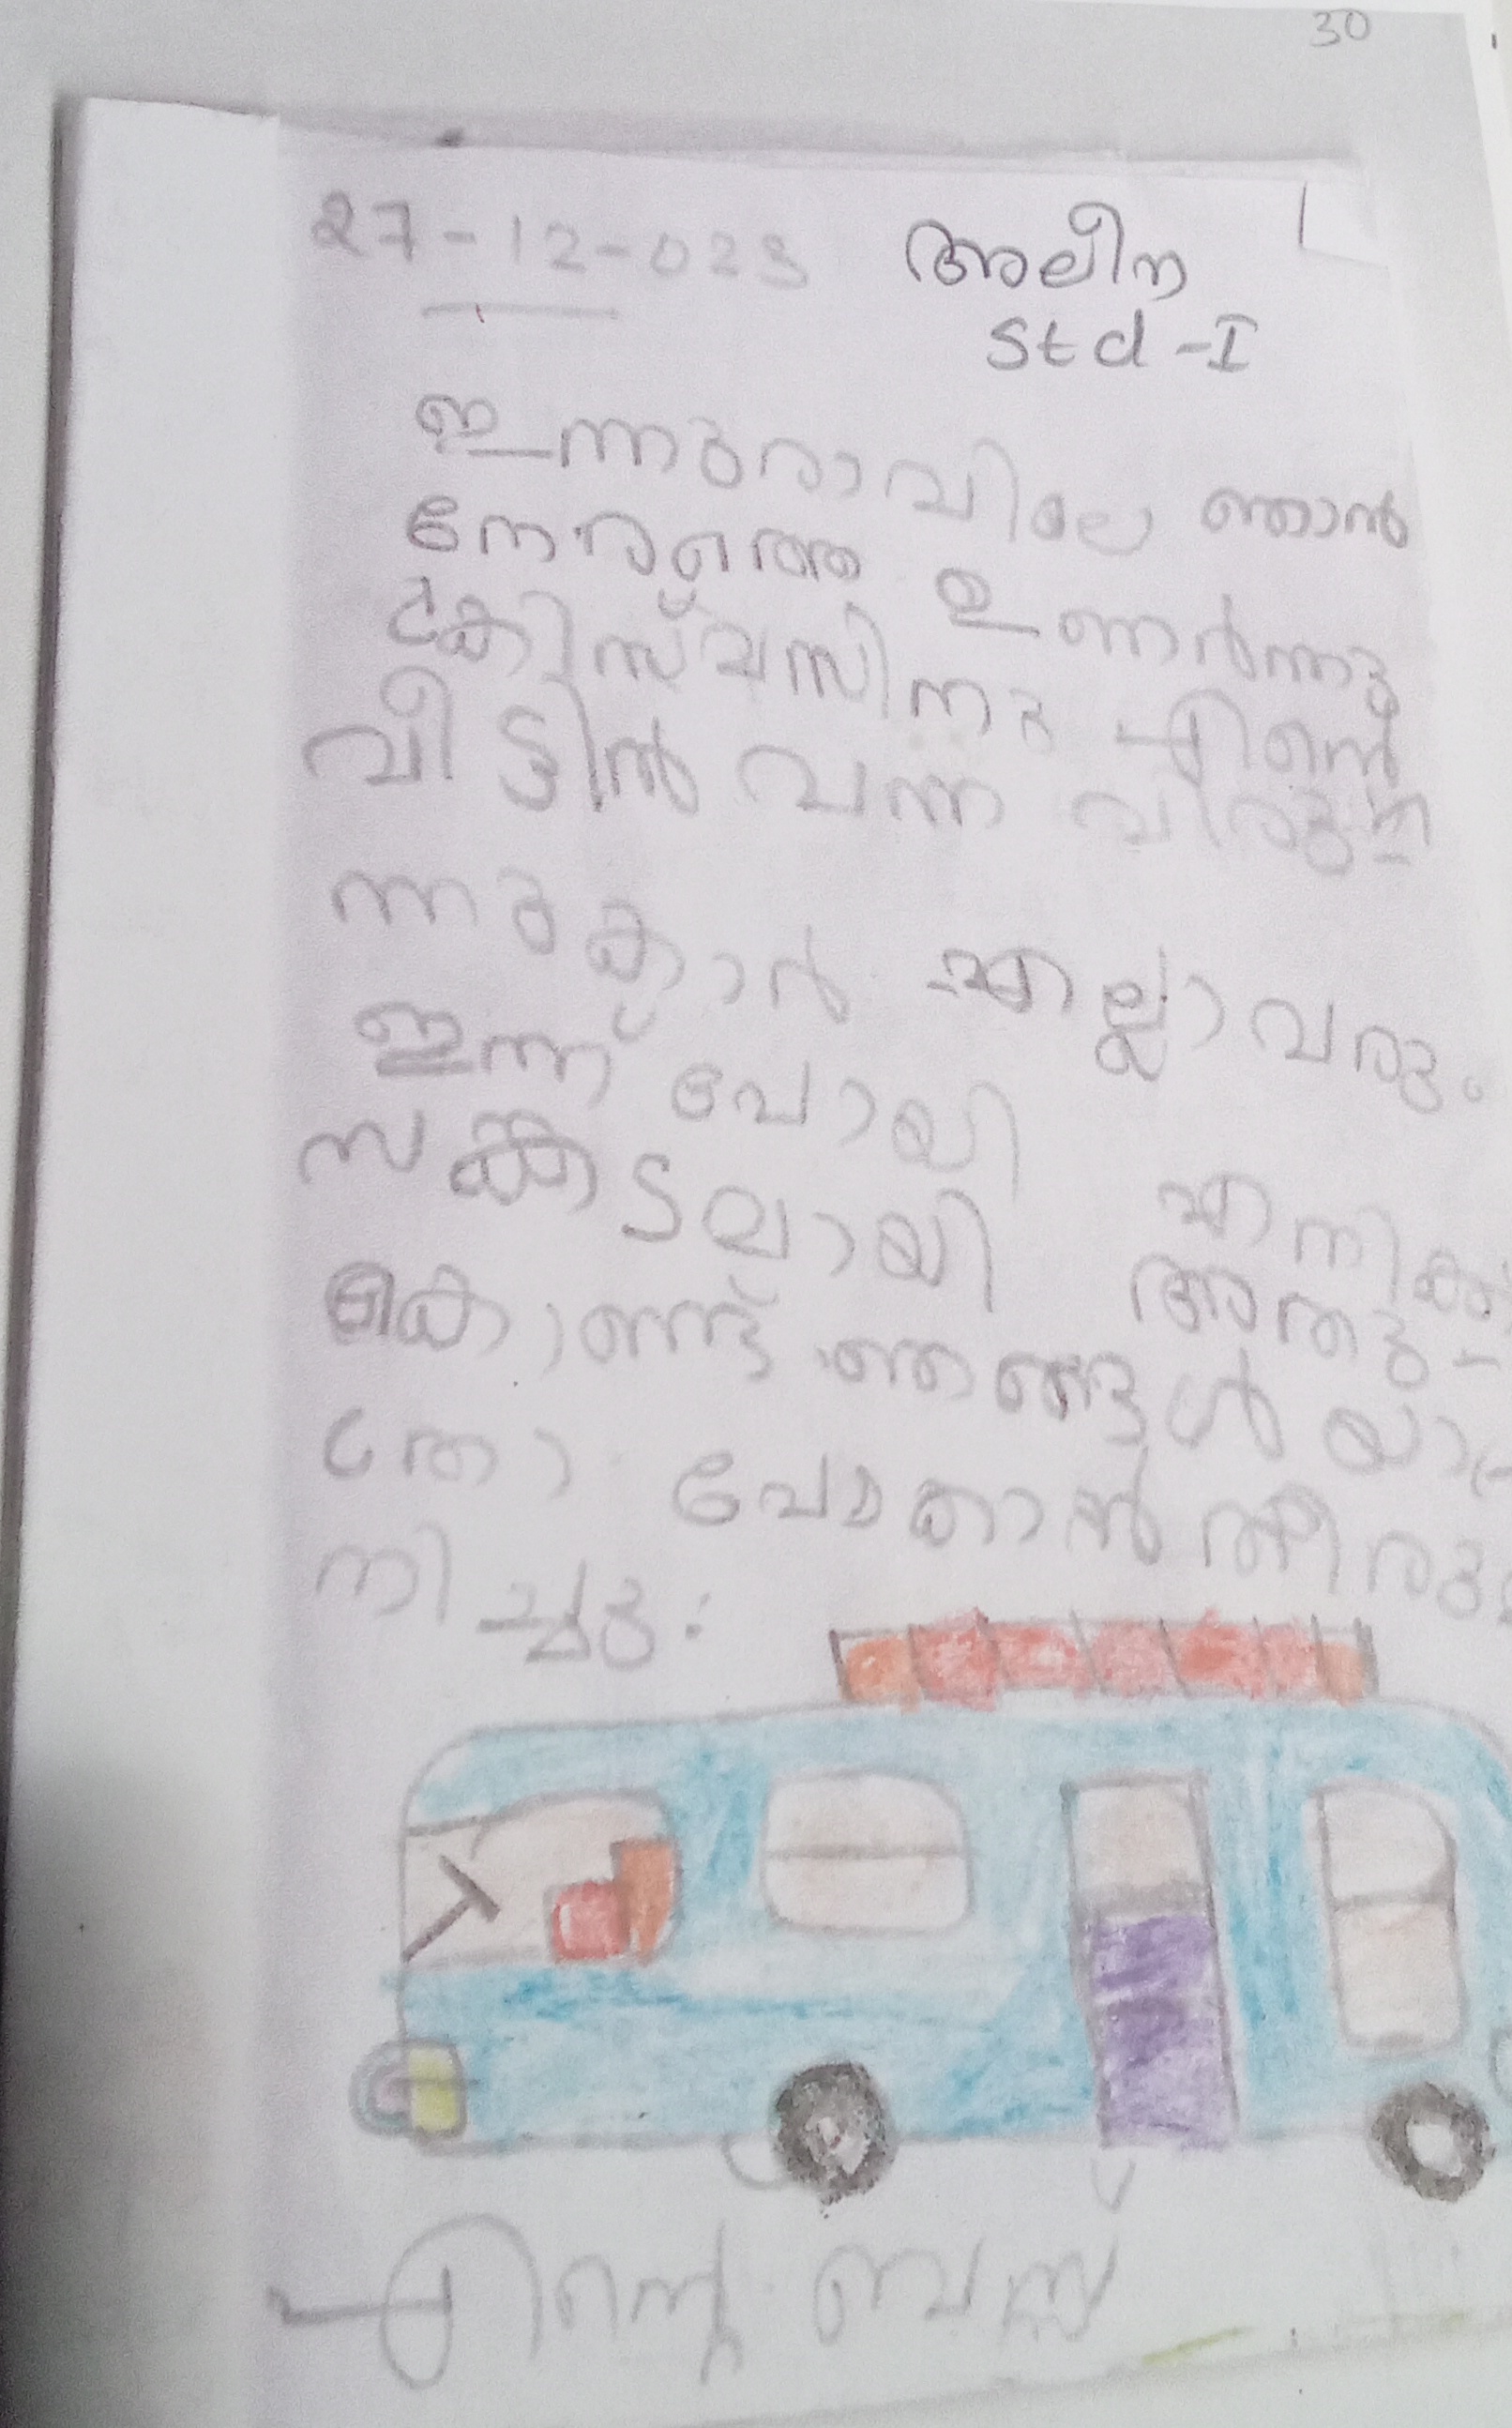 30
27-12-023 അലീന
Std-I
ഇന്നുരാവിലെ ഞാൻ
നേരുത്തെ ഉണർന്നു
ക്രിസ്മസിനു എിന്റെ
വീട്ടിൽ വന്ന വിരു
ന്നുകാൻ എല്ലാവരു.
ഇന്ന് പോയി എനിക്ക്
സങ്കടമായി അതു-
കൊണ്ട് ഞങ്ങൾ യാ
ത്രാ പോകാൻ തീരു
നിച്ചു:
എിന്റെ ബസ്സ്